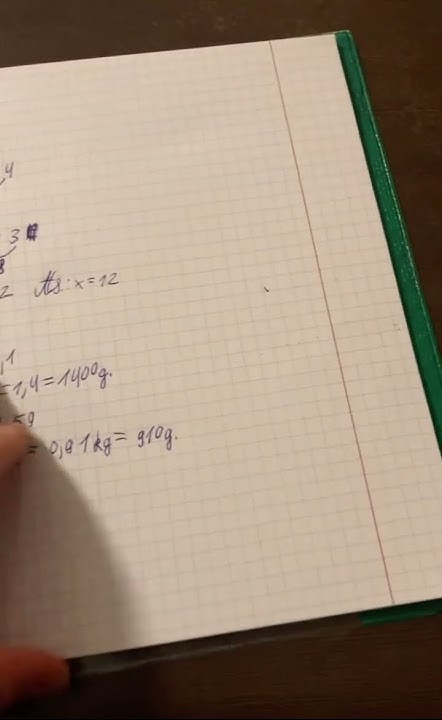 ,4
3
8
2 Ats: x=12
,1
=1,4=1400g.
59
= 0,91kg= 910g.